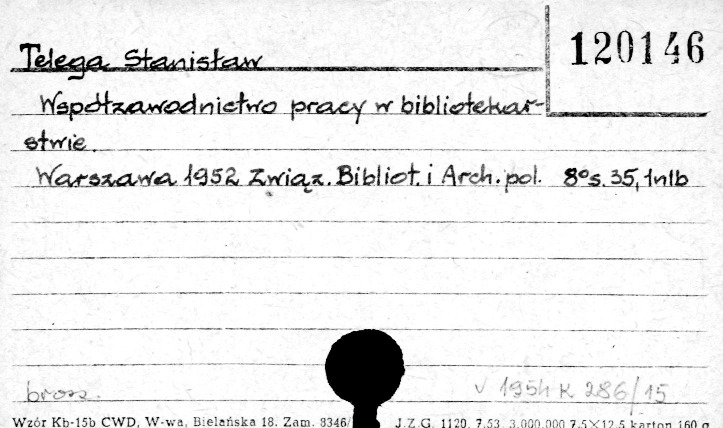 120146
Telega Stanisław
Współzawodnictwo pracy w bibliotekar-
stwie.
Warszawa 1952 Związ. Bibliot. i Arch. pol. 8° s. 35, 1nlb
brosz. v 1954 K 286/15
Wzór Kb-15b CWD, W-wa, Bielańska 18. Zam. 8346/ J.Z.G. 1120. 7.53. 3.000.000 7,5×12,5 karton 160 g